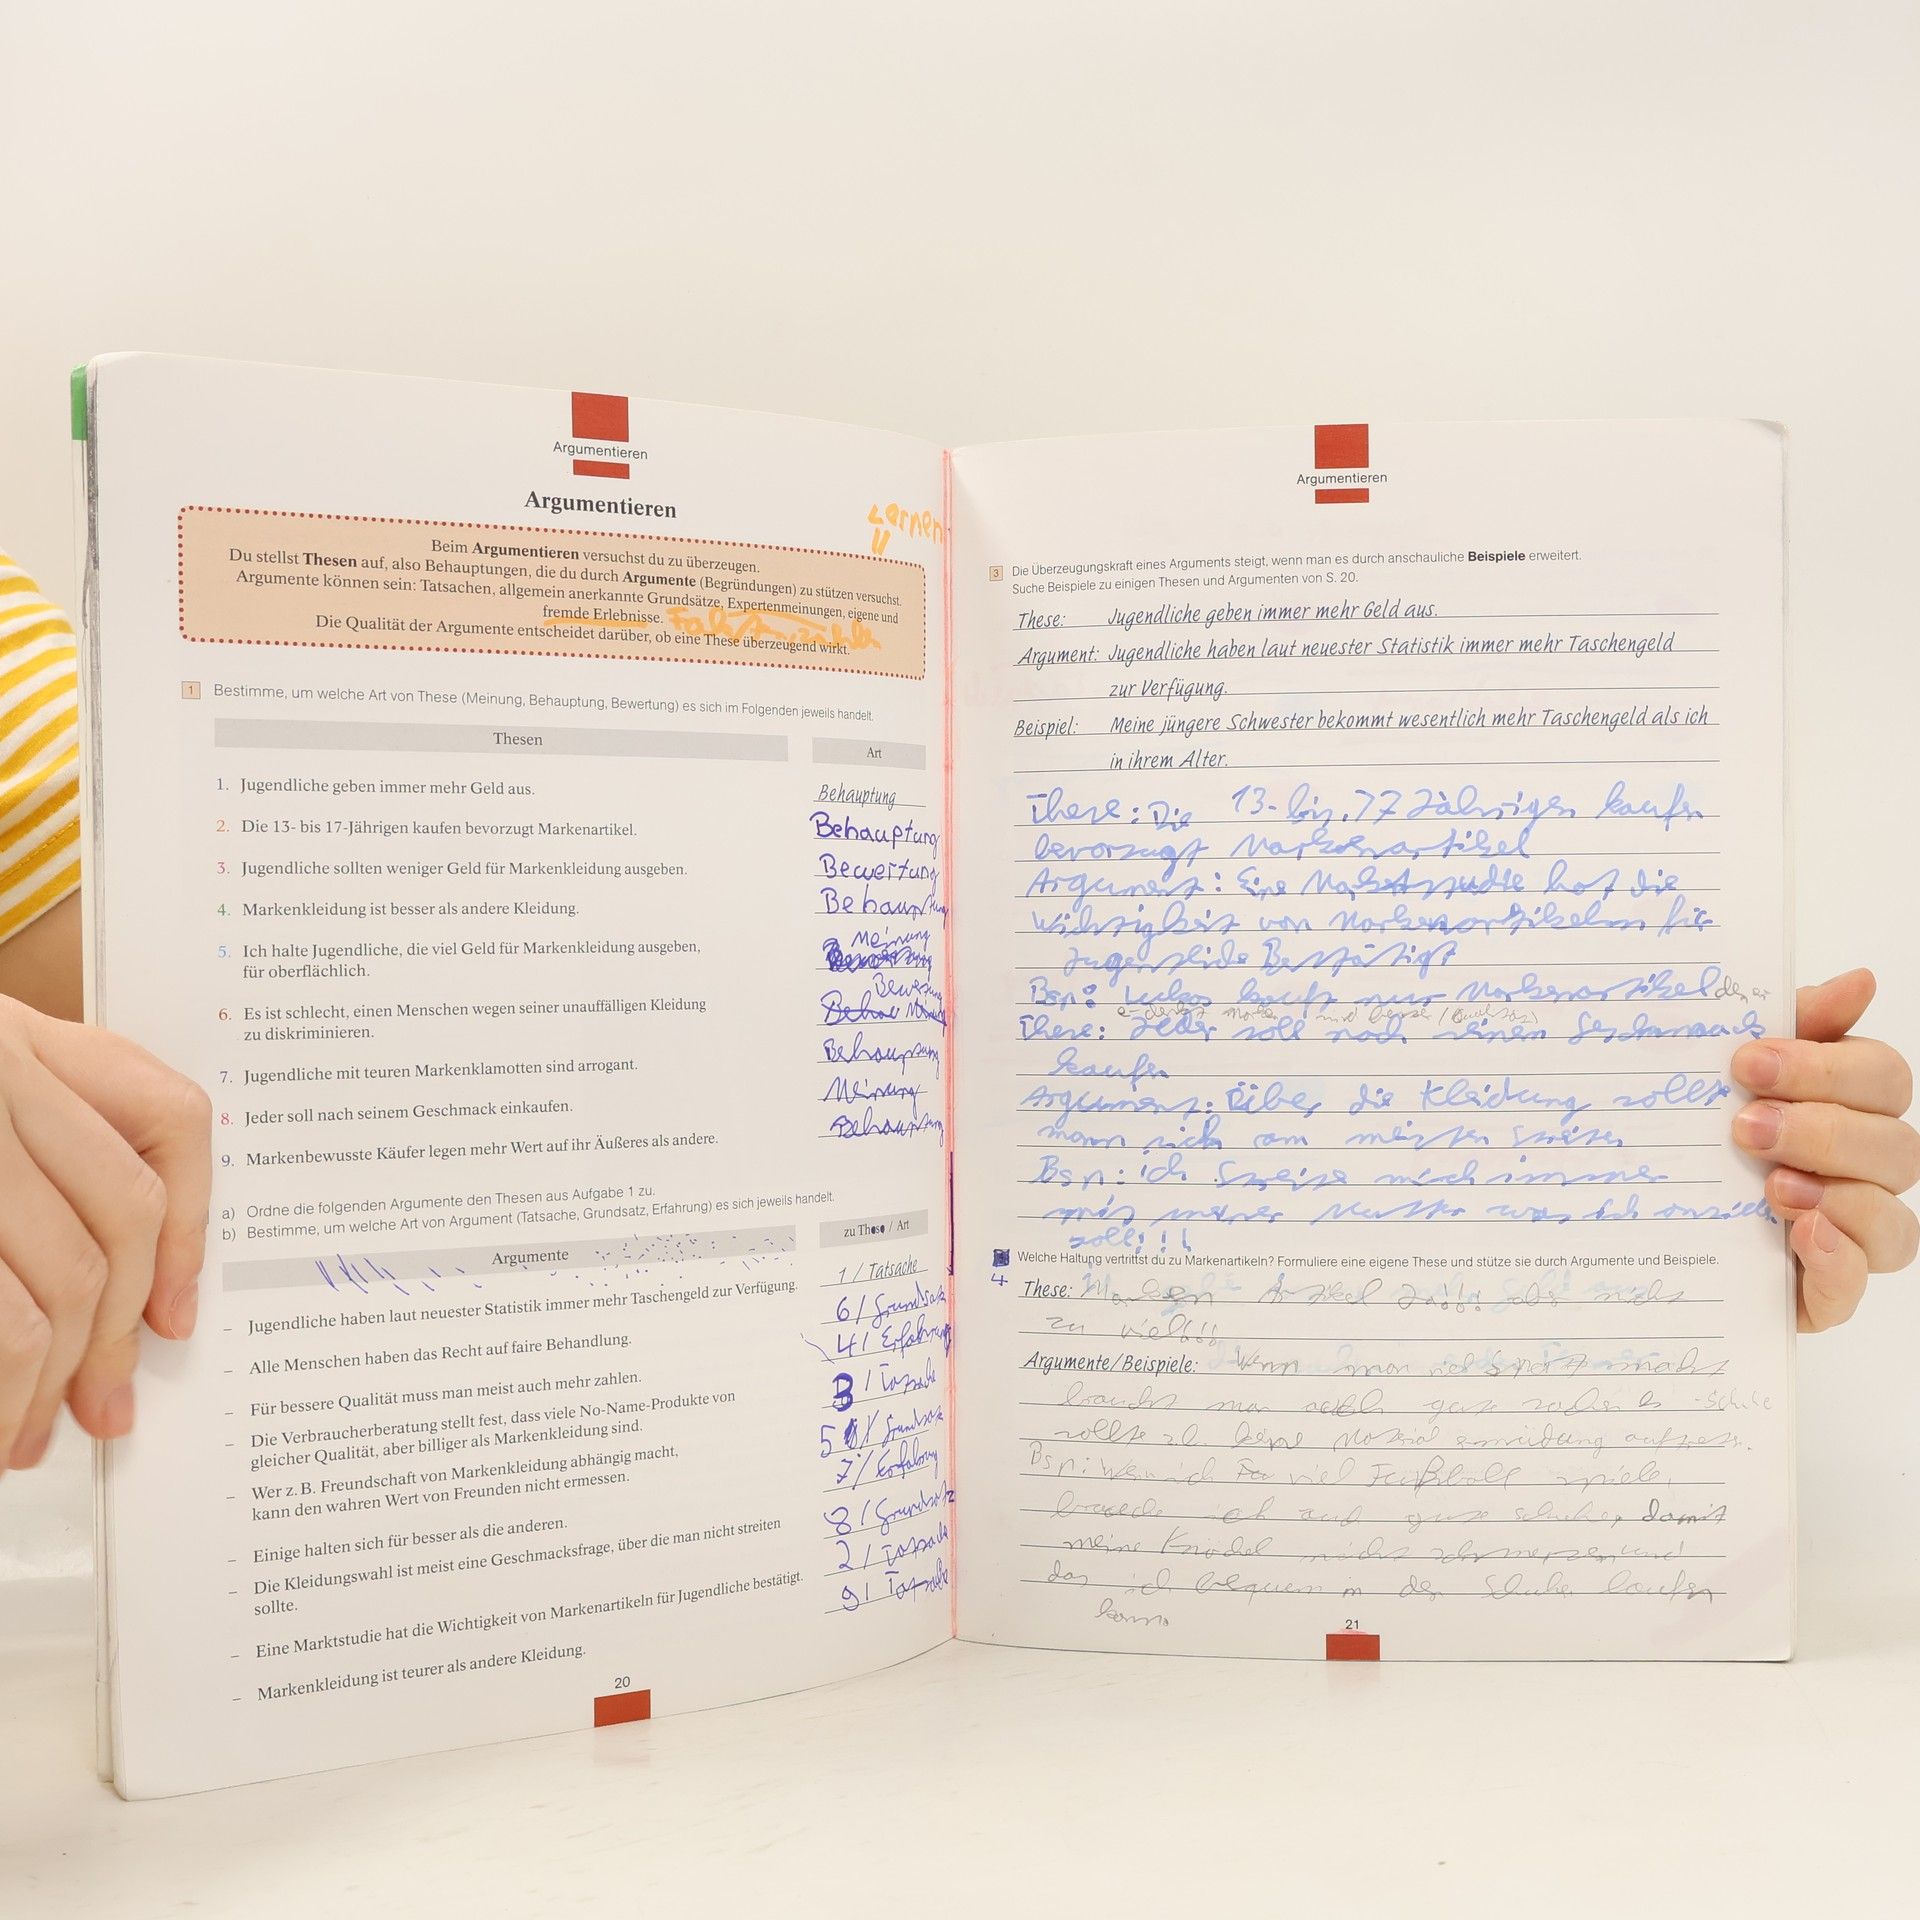 Argumentieren
Argumentieren
Lernen
Beim Argumentieren versuchst du zu überzeugen.
Du stellst Thesen auf, also Behauptungen, die du durch Argumente (Begründungen) zu stützen versuchst.
Argumente können sein: Tatsachen, allgemein anerkannte Grundsätze, Expertenmeinungen, eigene und
fremde Erlebnisse.
Die Qualität der Argumente entscheidet darüber, ob eine These überzeugend wirkt.
1 Bestimme, um welche Art von These (Meinung, Behauptung, Bewertung) es sich im Folgenden jeweils handelt.
Thesen Art
1. Jugendliche geben immer mehr Geld aus. Behauptung
2. Die 13- bis 17-Jährigen kaufen bevorzugt Markenartikel. Behauptung
3. Jugendliche sollten weniger Geld für Markenkleidung ausgeben. Bewertung
4. Markenkleidung ist besser als andere Kleidung. Behauptung
5. Ich halte Jugendliche, die viel Geld für Markenkleidung ausgeben, Meinung
für oberflächlich.
6. Es ist schlecht, einen Menschen wegen seiner unauffälligen Kleidung Bewertung
zu diskriminieren.
7. Jugendliche mit teuren Markenklamotten sind arrogant. Behauptung
8. Jeder soll nach seinem Geschmack einkaufen. Meinung
9. Markenbewusste Käufer legen mehr Wert auf ihr Äußeres als andere. Behauptung
a) Ordne die folgenden Argumente den Thesen aus Aufgabe 1 zu.
b) Bestimme, um welche Art von Argument (Tatsache, Grundsatz, Erfahrung) es sich jeweils handelt.
Argumente zu These / Art
– Jugendliche haben laut neuester Statistik immer mehr Taschengeld zur Verfügung. 1 / Tatsache
– Alle Menschen haben das Recht auf faire Behandlung. 6 / Grundsatz
– Für bessere Qualität muss man meist auch mehr zahlen. 4 / Erfahrung
– Die Verbraucherberatung stellt fest, dass viele No-Name-Produkte von 3 / Tatsache
gleicher Qualität, aber billiger als Markenkleidung sind.
– Wer z. B. Freundschaft von Markenkleidung abhängig macht, 5 / Grundsatz
kann den wahren Wert von Freunden nicht ermessen.
– Einige halten sich für besser als die anderen. 7 / Erfahrung
– Die Kleidungswahl ist meist eine Geschmacksfrage, über die man nicht streiten 8 / Grundsatz
sollte.
– Eine Marktstudie hat die Wichtigkeit von Markenartikeln für Jugendliche bestätigt. 2 / Tatsache
– Markenkleidung ist teurer als andere Kleidung. 9 / Tatsache
20
Argumentieren
3 Die Überzeugungskraft eines Arguments steigt, wenn man es durch anschauliche Beispiele erweitert.
Suche Beispiele zu einigen Thesen und Argumenten von S. 20.
These: Jugendliche geben immer mehr Geld aus.
Argument: Jugendliche haben laut neuester Statistik immer mehr Taschengeld
zur Verfügung.
Beispiel: Meine jüngere Schwester bekommt wesentlich mehr Taschengeld als ich
in ihrem Alter.
These: Die 13- bis 17 Jährigen kaufen
bevorzugt Markenartikel
Argument: Eine Marktstudie hat die
Wichtigkeit von Markenartikeln für
Jugendliche Bestätigt
Bsp: kauft nur Markenartikel
These: Jeder soll nach seinem Geschmack
kaufen
Argument: Über die Kleidung sollte
mann sich am meisten
Bsp: ich mich immer
mit meiner Mutter was ich
soll!!!
4 Welche Haltung vertrittst du zu Markenartikeln? Formuliere eine eigene These und stütze sie durch Argumente und Beispiele.
These: Marken Artikel Ja!!! aber nicht
zu viel!!!
Argumente/Beispiele: Wenn man viel Sport macht
braucht man
sollte z.B. keine Material
Bsp: Wen ich viel Fußball spiele,
ich auch gute schuhe, damit
meine Knöchel nicht schmerzen und
das ich bequem in den Schuhe laufen
kann.
21